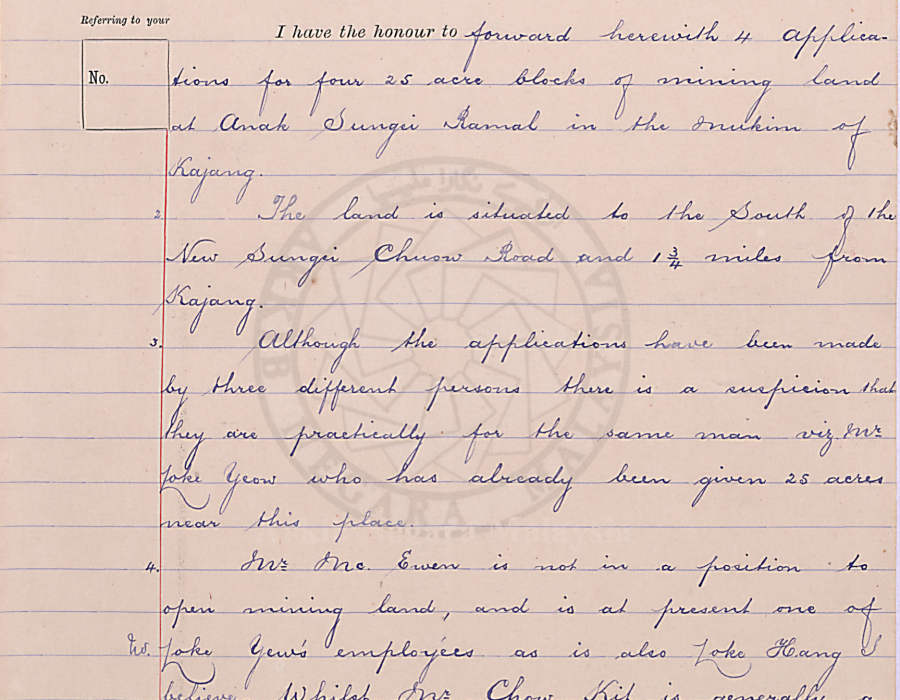 Referring to your
I have the honour to forward herewith 4 applica-
No.
tions for four 25 acre blocks of mining land
at Anak Sungei Ramal in the mukim of
Kajang.
2. The land is situated to the South of the
New Sungei Chuow Road and 1 3/4 miles from
Kajang.
3. Although the applications have been made
by three different persons there is a suspicion that
they are practically for the same man viz. Mr
Loke Yeow who has already been given 25 acres
near this place.
4. Mr Mc. Ewen is not in a position to
open mining land, and is at present one of
Loke Yew's employées as is also Loke Hang I
believe Whilst Mr Chow Kit is generally a
ARKIB NEGARA MALAYSIA